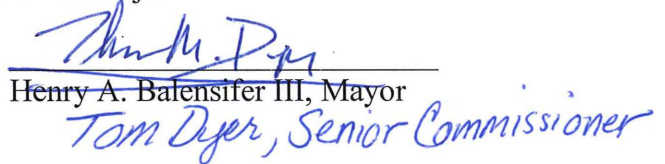 Henry A. Balensifer III, Mayor
Tom Dyer, Senior Commissioner